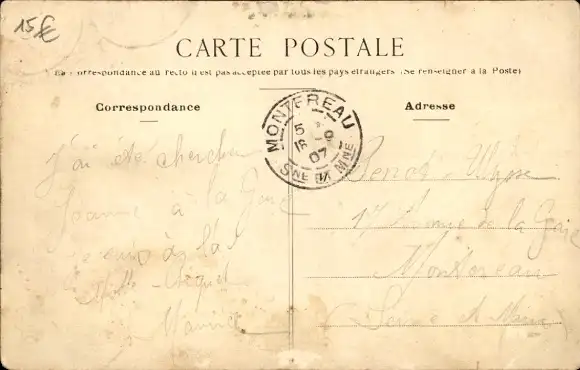 15€
CARTE POSTALE
La Correspondance au recto n'est pas acceptée par tous les pays étrangers (Se renseigner à la Poste)
Correspondance
Adresse
MONTEREAU
5 - 9
07
SNE ET MNE
J'ai été chercher
Jeanne à la Gare
à la
Maurice
Benoit Ulysse
17 de la Gare
Montereau
Seine et Marne